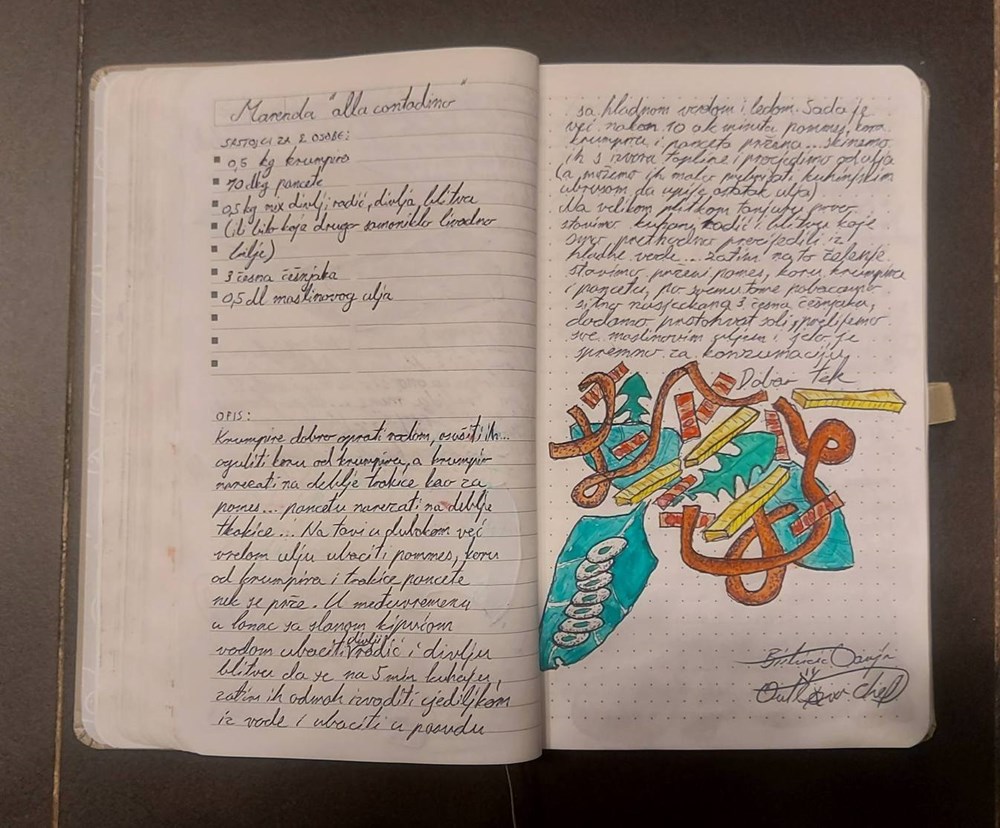 Marenda "alla contadino"
SASTOJCI ZA 2 OSOBE:
0,5 kg krumpira
10 dkg pancete
0,5 kg mix divlji radič, divlja blitva
(ili bilo koje drugo samoniklo livadno
bilje)
3 česna češnjaka
0,5 dl maslinovog ulja
OPIS:
Krumpire dobro oprati vodom, osušiti ih...
oguliti koru od krumpira, a krumpir
narezati na deblje trakice kao za
pomes... pancetu narezati na deblje
tkakice... Na tavi u dubokom već
vrelom ulju ubaciti pommes, koru
od krumpira i trakice pancete
nek se prže. U međuvremenu
u lonac sa slanom kipućom
vodom ubaciti divlji radić i divlju
blitvu da se na 5 min kuhaju,
zatim ih odmah izvaditi cjediljkom
iz vode i ubaciti u posudu
sa hladnom vodom i ledom. Sada je
već nakon 10 ak minuta pommes, kora
krumpira i panceta pržena... skinemo
ih s izvora topline i procjedimo od ulja
(a možemo ih malo kuhinjskim
ubrusom da upije ostatak ulja)
Na velikom plitkom tanjuru prvo
stavimo kuhani radić i blitvu koje
smo prethodno procijedili iz
hladne vode... zatim na to zelenje
stavimo prženi pomes, koru krumpira
i pancetu, po svemu tome pobacamo
sitno nasjeckana 3 česna češnjaka,
dodamo prstohvat soli, prelijemo
sve maslinovim uljem i jelo je
spremno za konzumaciju
Dobar tek
Chef